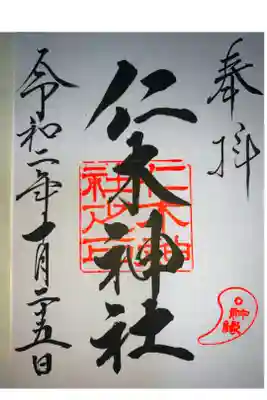 奉拝
仁木神社
仁木神
社之印
令和二年一月二十五日